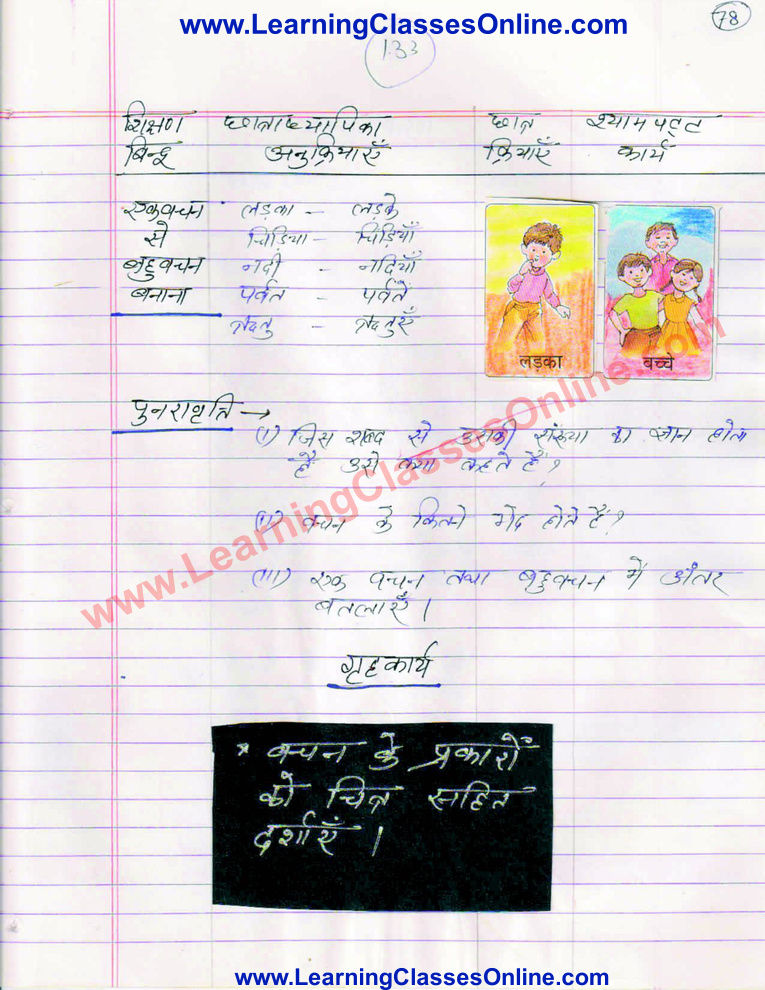 www.LearningClassesOnline.com
78
133
शिक्षण छात्राध्यापिका छात्र श्यामपट्ट
बिन्दू अनुक्रियाएँ क्रियाएँ कार्य
एकवचन लड़का – लड़के
से चिडिया – चिड़ियाँ
बहुवचन नदी – नदियाँ
बनाना पर्वत – पर्वतें
ऋतु – ऋतुएँ
लड़का बच्चे
पुनरावृति →
(i) जिस शब्द से उसकी संख्या का ज्ञान होता
है उसे क्या कहते हैं?
(ii) वचन के कितने भेद होते हैं?
(iii) एक वचन तथा बहुवचन में अंतर
बतलाएँ।
www.LearningClassesOnline.com
गृहकार्य
* वचन के प्रकारों
को चित्र सहित
दर्शाएँ।
www.LearningClassesOnline.com